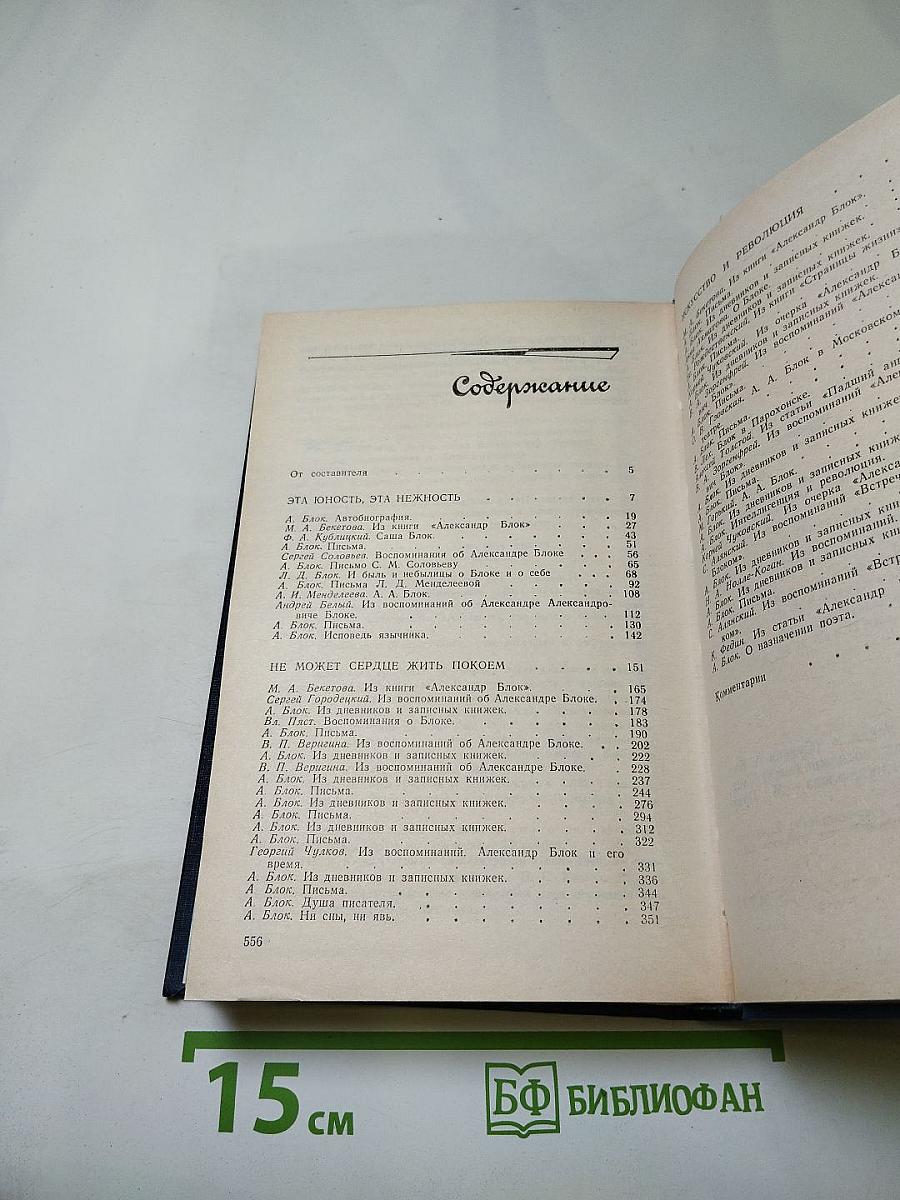 Содержание
От составителя . . . . . . . . . 5
ЭТА ЮНОСТЬ, ЭТА НЕЖНОСТЬ . . . . . 7
А. Блок. Автобиография. . . . . . . . 19
М. А. Бекетова. Из книги «Александр Блок» . . . 27
Ф. А. Кублицкий. Саша Блок. . . . . . . 43
А. Блок. Письма. . . . . . . . . 51
Сергей Соловьев. Воспоминания об Александре Блоке . . . 56
А. Блок. Письмо С. М. Соловьеву . . . . . 65
Л. Д. Блок. И быль и небылицы о Блоке и о себе . . . 68
А. Блок. Письма Л. Д. Менделеевой . . . . 92
А. И. Менделеева. А. А. Блок. . . . . . . 108
Андрей Белый. Из воспоминаний об Александре Александро-
виче Блоке. . . . . . . . . 112
А. Блок. Письма. . . . . . . . . 130
А. Блок. Исповедь язычника. . . . . . . 142
НЕ МОЖЕТ СЕРДЦЕ ЖИТЬ ПОКОЕМ . . . . 151
М. А. Бекетова. Из книги «Александр Блок». . . 165
Сергей Городецкий. Из воспоминаний об Александре Блоке. . 174
А. Блок. Из дневников и записных книжек. . . . . 178
Вл. Пяст. Воспоминания о Блоке. . . . . . . 183
А. Блок. Письма. . . . . . . . . 190
В. П. Веригина. Из воспоминаний об Александре Блоке. . . 202
А. Блок. Из дневников и записных книжек. . . . . 222
В. П. Веригина. Из воспоминаний об Александре Блоке. . . 228
А. Блок. Из дневников и записных книжек. . . . . 237
А. Блок. Письма. . . . . . . . . 244
А. Блок. Из дневников и записных книжек. . . . . 276
А. Блок. Письма. . . . . . . . . 294
А. Блок. Из дневников и записных книжек. . . . . 312
А. Блок. Письма. . . . . . . . . 322
Георгий Чулков. Из воспоминаний. Александр Блок и его
время. . . . . . . . . . 331
А. Блок. Из дневников и записных книжек. . . . . 336
А. Блок. Письма. . . . . . . . . 344
А. Блок. Душа писателя. . . . . . . . 347
А. Блок. Ни сны, ни явь. . . . . . . . 351
556
И РЕВОЛЮЦИЯ
Бекетова. Из книги «Александр Блок».
Письма.
Из дневников и записных книжек.
О Блоке.
Из дневников и записных книжек.
Из книги «Страницы
Письма.
Чуковский. Из очерка «Александр
Из дневников и записных книжек.
Из воспоминаний
Блок. Письма. А. А. Блок в Московском
театре.
Блок. Письма.
Блок в Парохонске.
Толстой. Из статьи «Падший
Зоргенфрей. Из воспоминаний
Блок. Из дневников и записных
Блок. Письма.
Горький. А. А. Блок.
Блок. Из дневников и записных
Блок. Интеллигенция и революция.
Корней Чуковский. Из очерка
С. Алянский. Из воспоминаний «Встречи
Блоком».
А. Блок. Из дневников и записных
Н. А. Нолле-Коган. Из воспоминаний.
А. Блок. Из дневников и записных
А. Блок. Письма.
С. Алянский. Из воспоминаний
ком».
К. Федин. Из статьи «Александр
А. Блок. О назначении поэта.
Комментарии
15 см
БФ БИБЛИОФАН